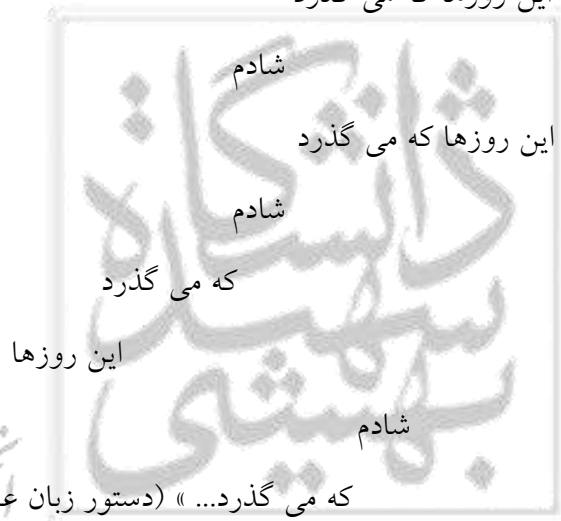 این روزها که می گذرد
شادم
این روزها که می گذرد
شادم
که می گذرد
این روزها
شادم
که می گذرد... » (دستور زبان
دانشگاه شهید بهشتی